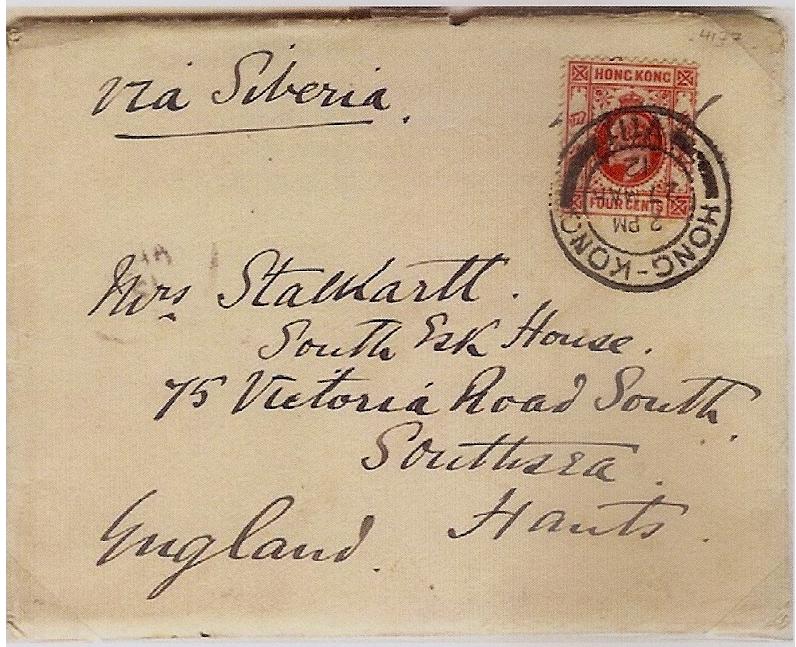 4177
via Siberia.
HONG KONG
FOUR CENTS
HONG-KONG
2 PM
27 MAR
12
Mrs Stalkartt.
South Esk House.
75 Victoria Road South.
Southsea.
Hants.
England.